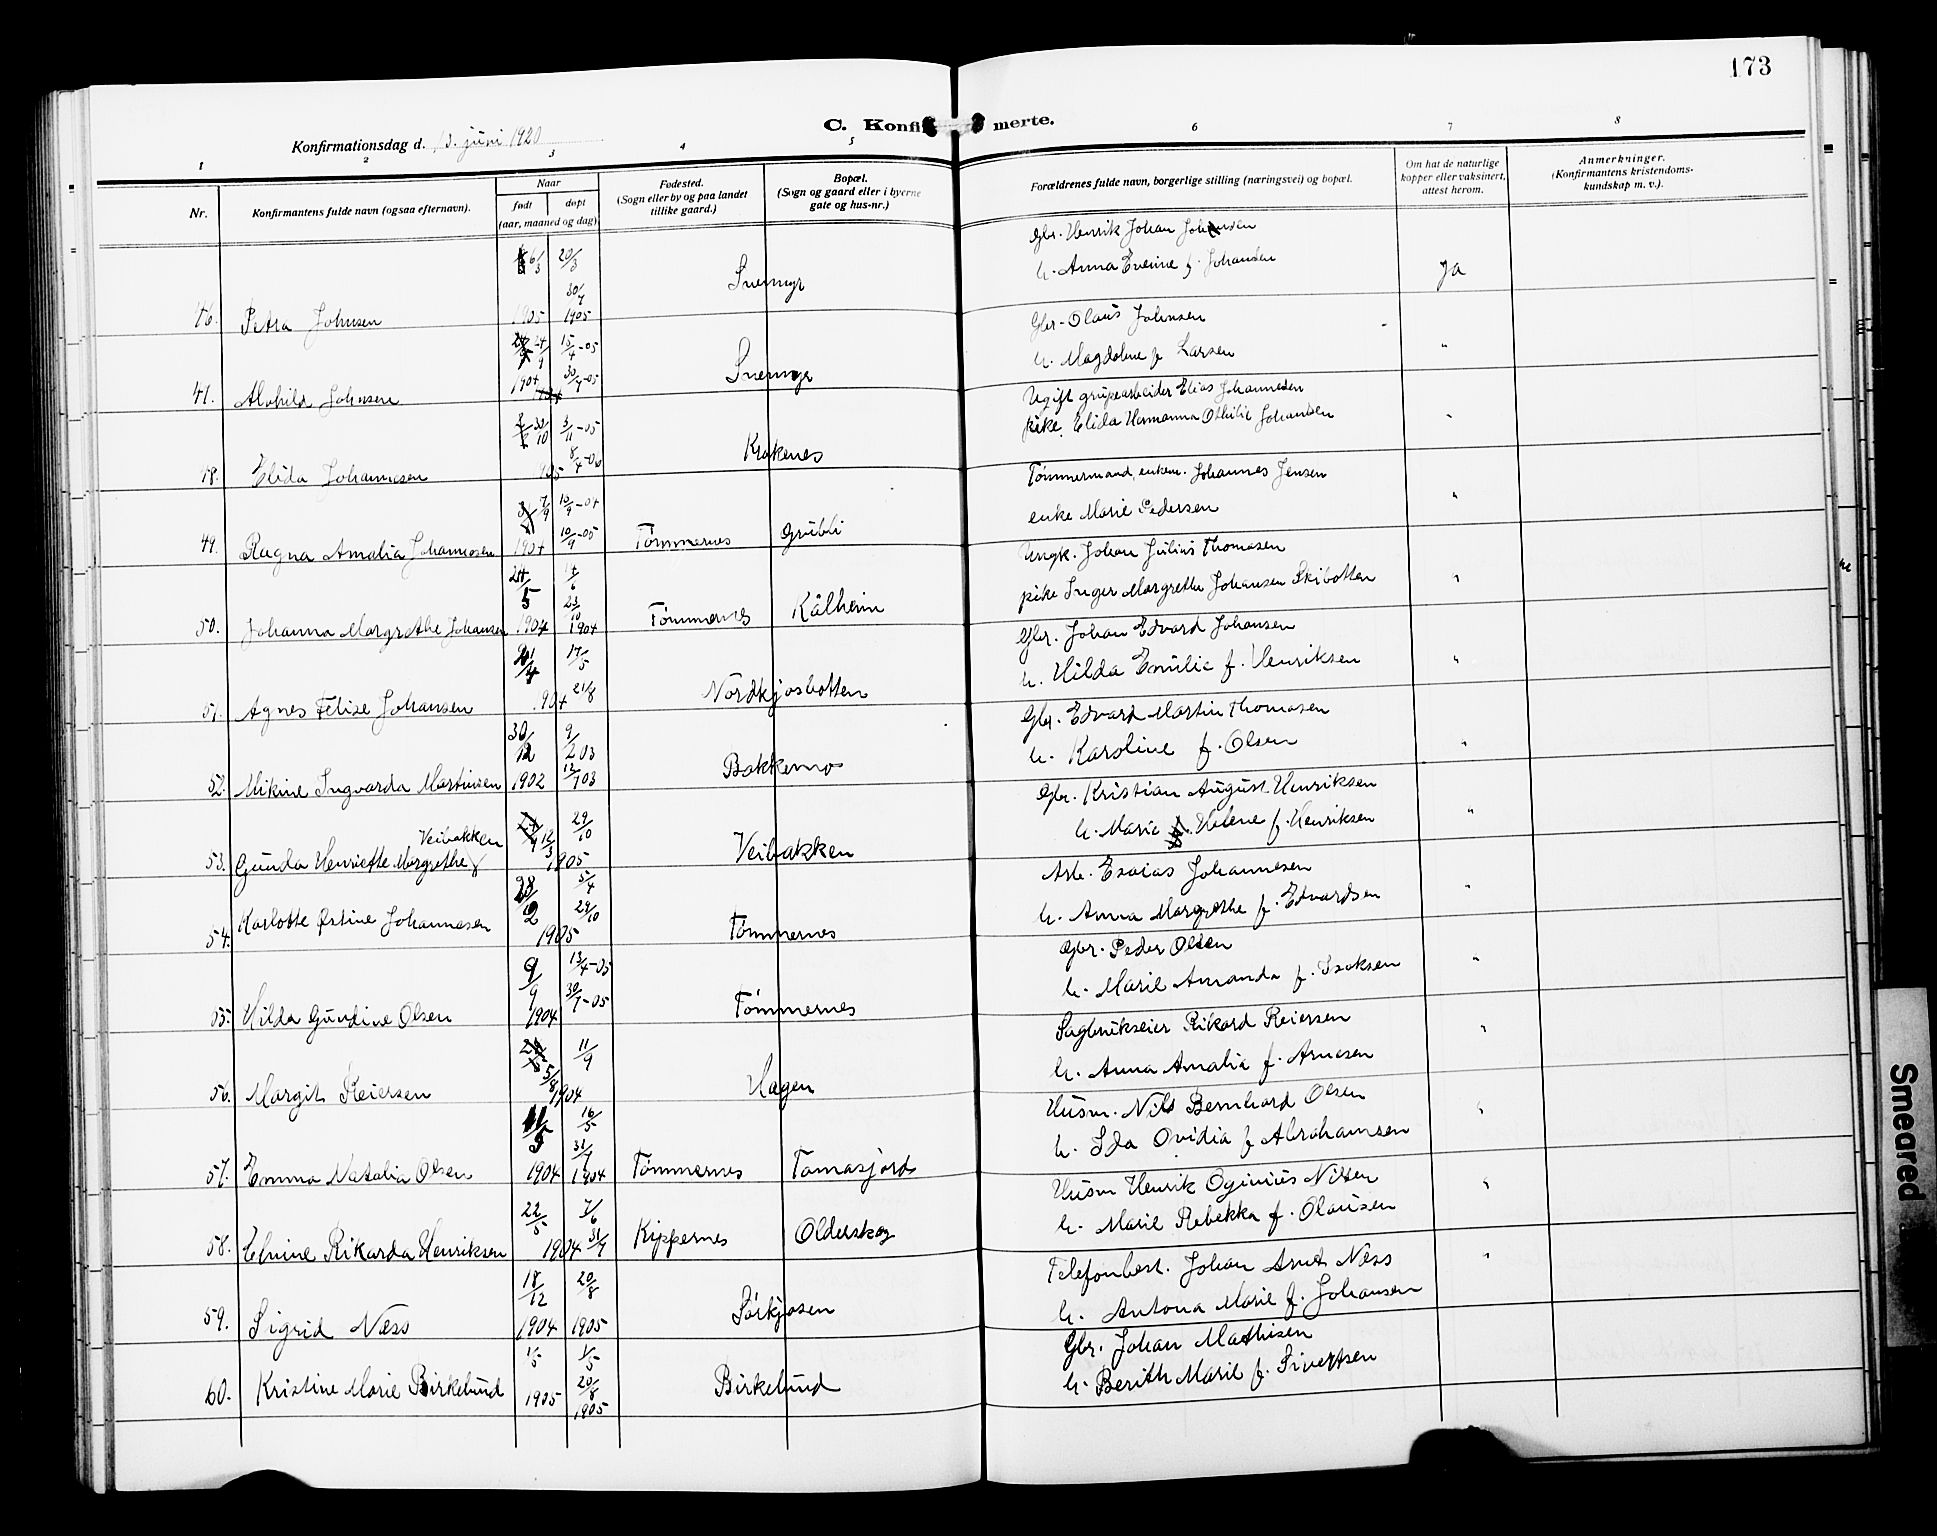 173
C. Konfi merte.
Konfirmationsdag d. 13. juni 1920
1 2 3 4 5 6 7 8
Nr.
Konfirmantens fulde navn (ogsaa efternavn).
Naar
født
døpt
(aar, maaned og dag)
Fødested.
(Sogn eller by og paa landet
tillike gaard.)
Bopæl.
(Sogn og gaard eller i byerne
gate og hus-nr.)
Forældrenes fulde navn, borgerlige stilling (næringsvei) og bopæl.
Om hat de naturlige
kopper eller vaksinert,
attest herom.
Anmerkninger.
(Konfirmantens kristendoms-
kundskap m. v.).
46. Petra Johnsen 6/3 1905 20/3 30/7 1905
Gbr. Henrik Johan Johansen
h. Anna Evenine f. Johansen Ja
Alvhild Johnsen 24/9 1904 15/4-05 30/7-05
Gbr. Olaus Johnsen
h. Magdolene f. Larsen "
48. Elida Johannesen 30/10 1905 3/11-05 8/4-06 Krakenes
Ugift grubearbeider Elias Johannesen
pike. Elida Hermanna Othilie Johansen "
49. Ragna Amalia Johannesen 7/9 1904 10/9-04 10/9-05 Tømmernes Grubli
Tømmermand, enkem. Johannes Jensen
enke Marie Pedersen "
50. Johanna Margrethe Johansen 24/5 1904 14/6 23/10 1904 Tømmernes Kålheim
Ungk. Johan Julius Thomasen
pike Inger Margrethe Johansen Skibotten "
51. Agnes Felize Johansen 1904 17/5 21/8 Nordkjosbotten
Gbr. Johan Edvard Johansen
h. Hilda Emilie f. Henriksen "
52. Mikine Ingvarda Martinsen 30/12 1902 9/2 03 12/7 03 Bakkemo
Gbr. Edvard Martin Thomasen
h. Karoline f. Olsen "
53. Gunda Henriette Margrethe Veibakken 12/3 1905 29/10 Veibakken
Gbr. Kristian August Henriksen
h. Marie Helene f. Henriksen "
54. Karlotte Østine Johannesen 28/2 1905 5/4 29/10 Tømmernes
Arb. Esaias Johannesen
h. Anna Margrethe f. Edvardsen "
55. Hilda Gundine Olsen 9/9 1904 13/4-05 30/7-05 Tømmernes
Gbr. Peder Olsen
h. Marie Amanda f. Isaksen "
56. Margit Reiersen 5/8 1904 11/9 Hagen
Sagbrukseier Rikard Reiersen
h. Anna Amalia f. Arnesen "
57. Emma Natalia Olsen 11/5 1904 16/5 31/7 1904 Tømmernes Tamasjord
Husm. Nils Bernhard Olsen
h. Ida Ovidia f. Abrahamsen "
58. Elvine Rikarda Henriksen 22/5 1904 7/6 31/7 Kippernes Olderskog
Husm Henrik Oginius Nilsen
h. Marie Rebekka f. Olausen "
59. Sigrid Næss 18/12 1904 20/8 1905 Sørkjosen
Telefonbest. Johan Arnt Næss
h. Antona Marie f. Johansen "
60. Kristine Marie Birkelund 1/5 1905 1/5 20/8 1905 Birkelund
Gbr. Johan Mathisen
h. Berith Marie f. Sivertsen
Smeared